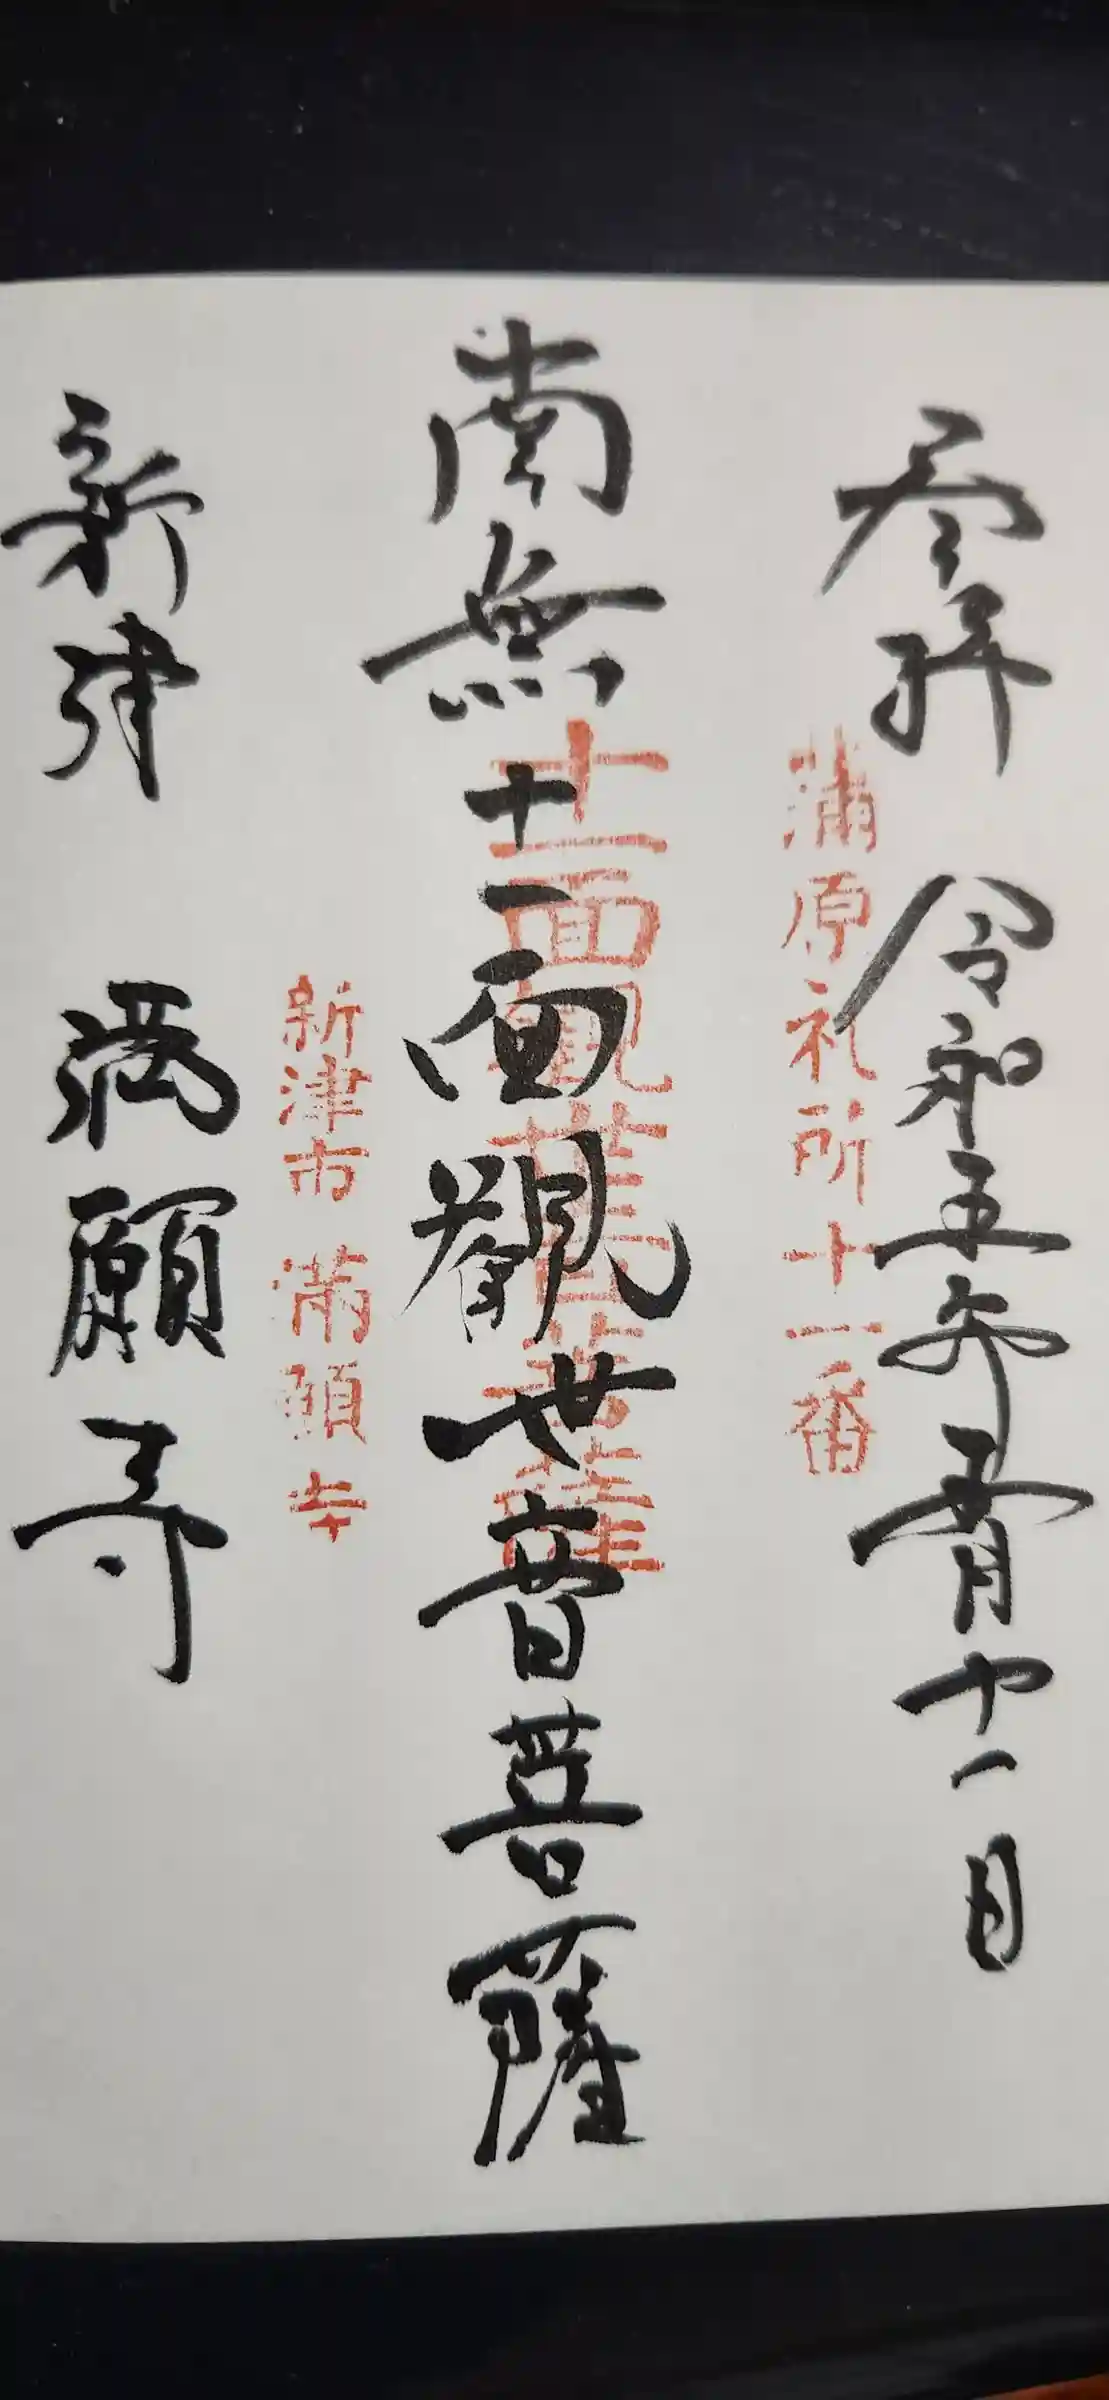 参拝 令和五年五月十一日
蒲原札所十一番
南無十一面觀世音菩薩
十一面観世音菩薩
新津市 満願寺
新津 満願寺